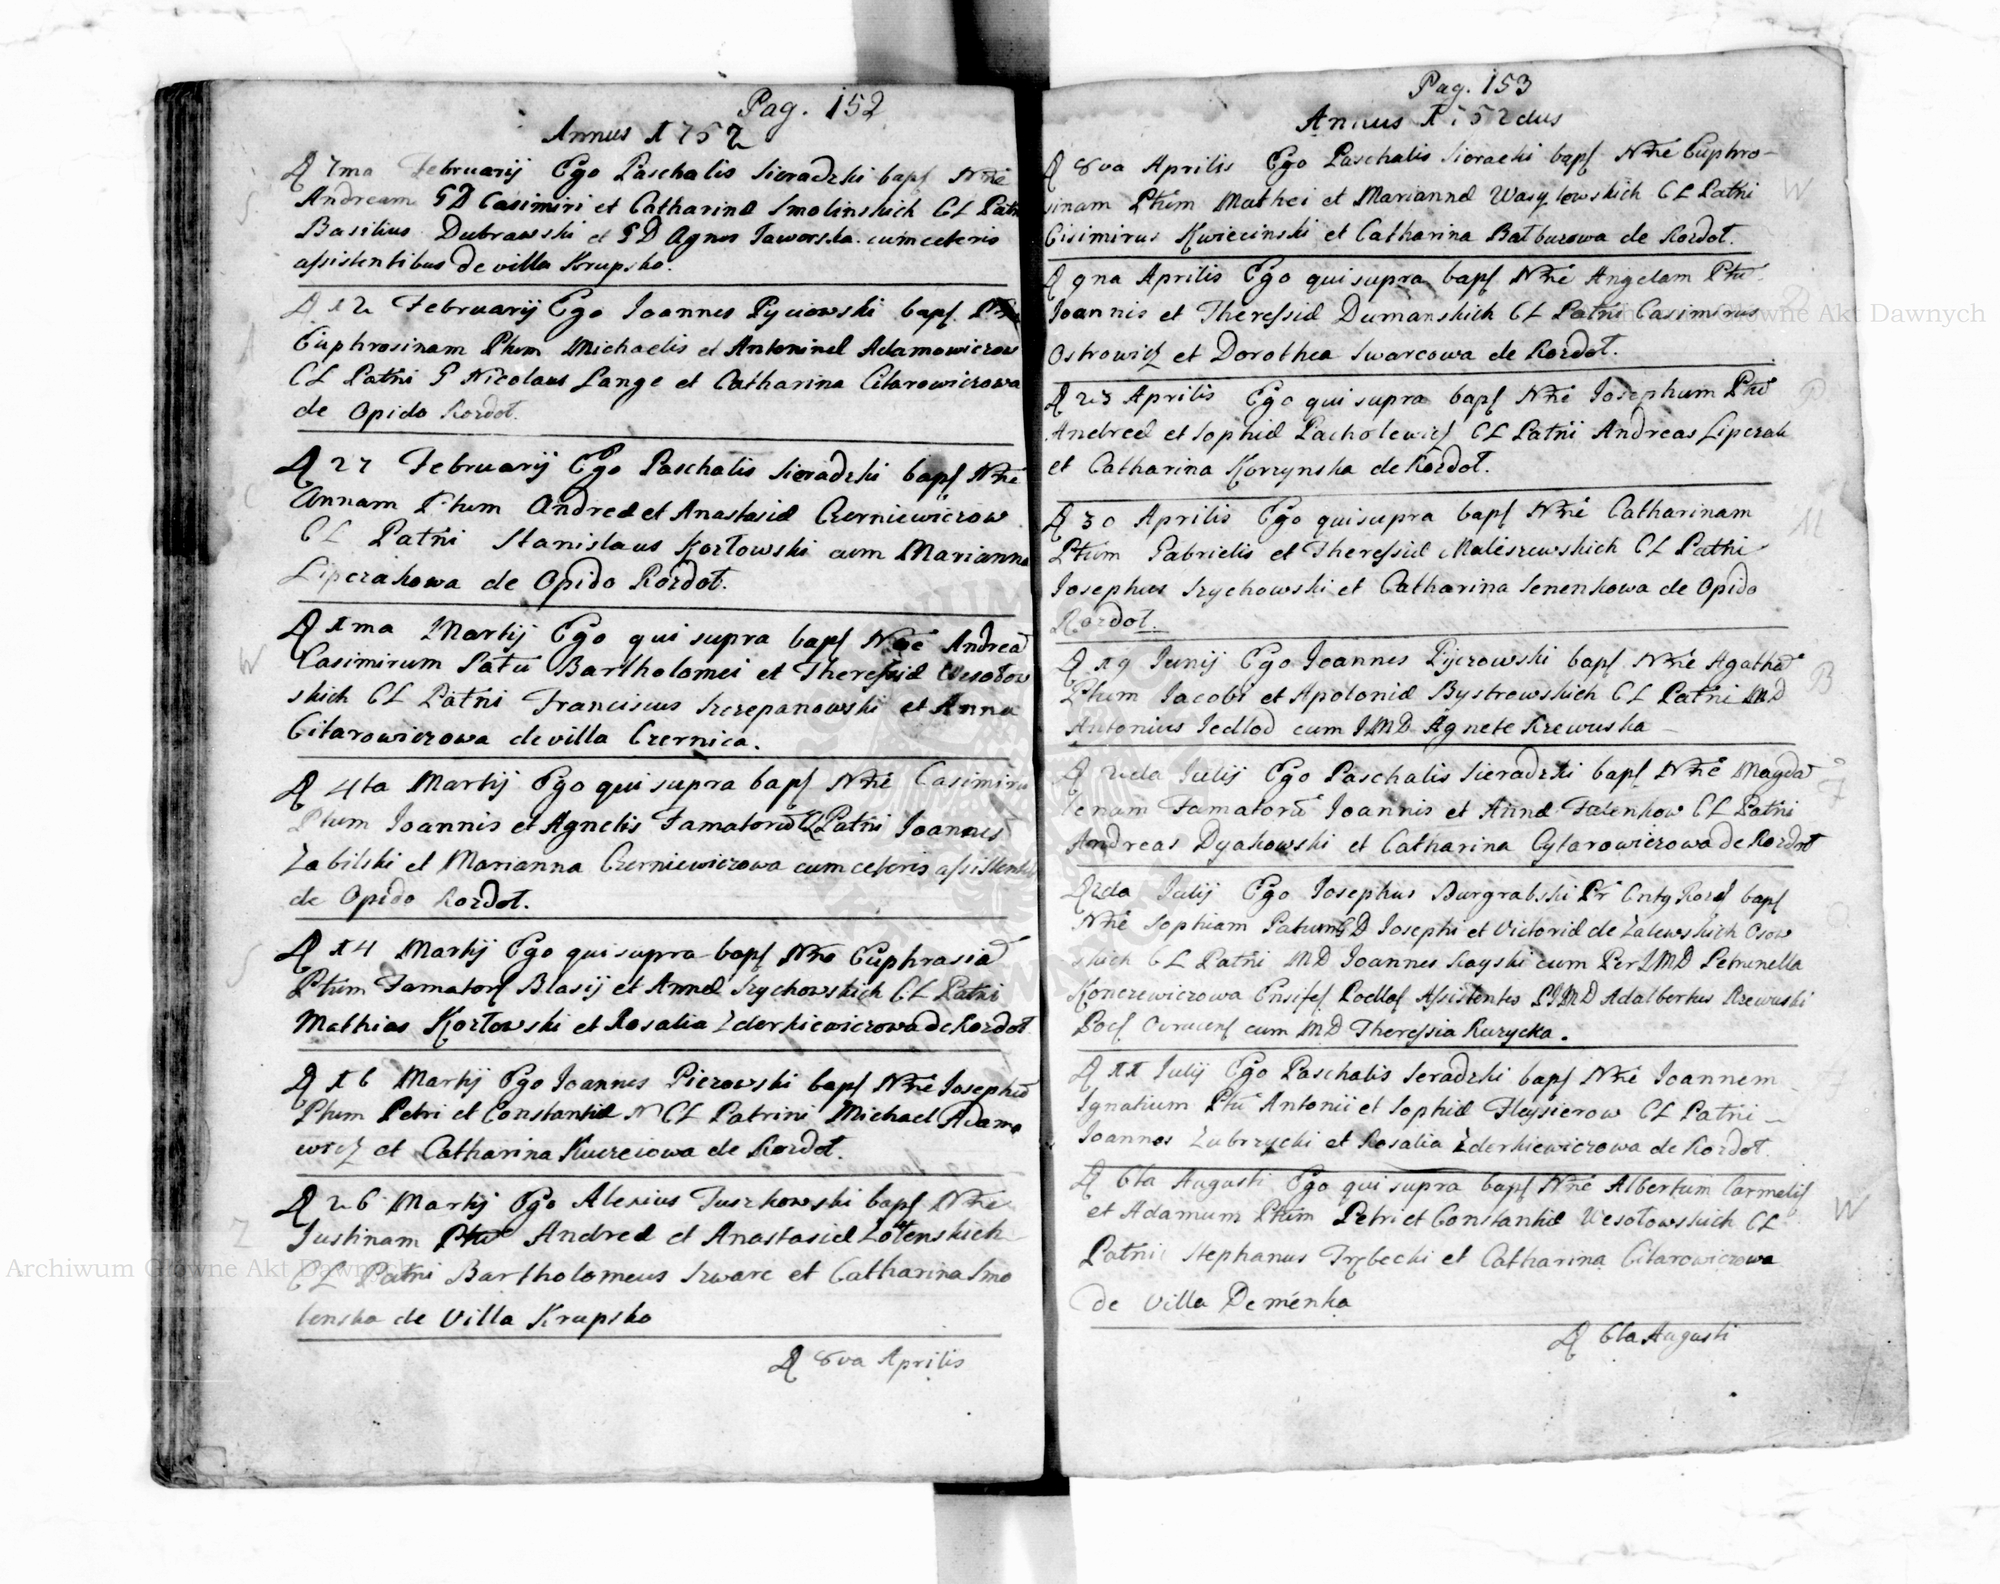 Pag. 152
Annus 1752
D 7ma Februarij Ego Paschalis Sieradzki bapt Nne
Andream GD Casimiri et Catharinæ Smolinskich CL Patni
Basilius Dubrawski et GD Agnes Jaworska cum ceteris
assistentibus de villa Krupsko.
D 12 Februarij Ego Joannes Pijciowski bapt
Euphrosinam Phum Michaelis et Antoninæ Adamowiczow
CL Patni G Nicolaus Lange et Catharina Citarowiczowa
de Opido Rozdoł.
D 27 Februarij Ego Paschalis Sieradzki bapt Nne
Annam Phum Andreæ et Anastasiæ Czerniewiczow
CL Patni Stanislaus Kozłowski cum Marianna
Lipczakowa de Opido Rozdoł.
D 1ma Martij Ego qui supra bapt Nne Andrea
Casimirum Patu Bartholomei et Theressiæ Wesołow
skich CL Patni Franciscus Szczepanowski et Anna
Citarowiczowa de villa Czernica.
D 4ta Martij Ego qui supra bapt Nne Casimiru
Phum Joannis et Agnetis Famatorū CL Patni Joannes
Zabilski et Marianna Czerniewiczowa cum ceteris assistentib
de Opido Rozdoł.
D 14 Martij Ego qui supra bapt Nne Euphrasiā
Phum Famatorʃ Blasij et Annæ Szychowskich CL Patni
Mathias Kozłowski et Rosalia Zderkiewiczowa de Rozdoł.
D 16 Martij Ego Joannes Piczowski bapt Nne Josephū
Phum Petri et Constantiæ N CL Patrini Michael Adamo
wicz et Catharina Kuczciowa de Rozdoł.
D 26 Martij Ego Alexius Juszkowski bapt Nne
Justinam Phu Andreæ et Anastasiæ Zołenskich
CL Patni Bartholomeus Szwarc et Catharina Smo
lenska de Villa Krupsko
D 8va Aprilis
Pag. 153
Annus 1752dus
D 8va Aprilis Ego Paschalis Sieracki bapt Nne Euphro-
sinam Phum Mathei et Mariannæ Wasylowskich CL Patni
Cisimirus Kwiecinski et Catharina Bałburowa de Rozdoł.
D 9na Aprilis Ego qui supra bapt Nne Angelam Phu
Joannis et Theressiæ Dumanskich CL Patni Casimirus
Ostrowicz et Dorothea Swarcowa de Rozdoł.
D 23 Aprilis Ego qui supra bapt Nne Josephum Phu
Andreæ et Sophiæ Pacholewicz CL Patni Andreas Lipczak
et Catharina Korzynska de Rozdoł.
D 30 Aprilis Ego qui supra bapt Nne Catharinam
Phum Gabrielis et Theressiæ Maliszewskich CL Patni
Josephus Szychowski et Catharina Senenkowa de Opido
Rozdoł.
D 19 Junij Ego Joannes Pijczowski bapt Nne Agathā
Phum Jacobi et Apoloniæ Bystrowskich CL Patni MD
Antonius Jedlod cum IMD Agnete Rzewuska
D 2da Julij Ego Paschalis Sieradzki bapt Nne Magda
lenam Famatorū Joannis et Annæ Falenkow CL Patni
Andreas Dyakowski et Catharina Cytarowiczowa de Rozdoł
D 2da Julij Ego Josephus Burgrabski Pr Cntg Rozd bapt
Nne Sophiam Patum GD Josephi et Victoriæ de Zalewskich Osow
skich CL Patni MD Joannes Kayski cum Per IMD Petrunella
Konczewiczowa Ensifeʃ Podlaʃ Assistentes PIMD Adalbertus Rzewuski
cum MD Theressia Ruzycka.
D 11 Julij Ego Paschalis Seradzki bapt Nne Joannem
Ignatium Phu Antonii et Sophiæ Fleysierow CL Patni
Joannes Zubrzycki et Rosalia Zderkiewiczowa de Rozdoł.
D 6ta Augusti Ego qui supra bapt Nne Albertum Carmeliʃ
et Adamum Phum Petri et Constantiæ Wesołowskich CL
Patni Stephanus Trzbecki et Catharina Citarowiczowa
de Villa Demenka
D 6ta Augusti
Archiwum Główne Akt Dawnych
Archiwum Główne Akt Dawnych